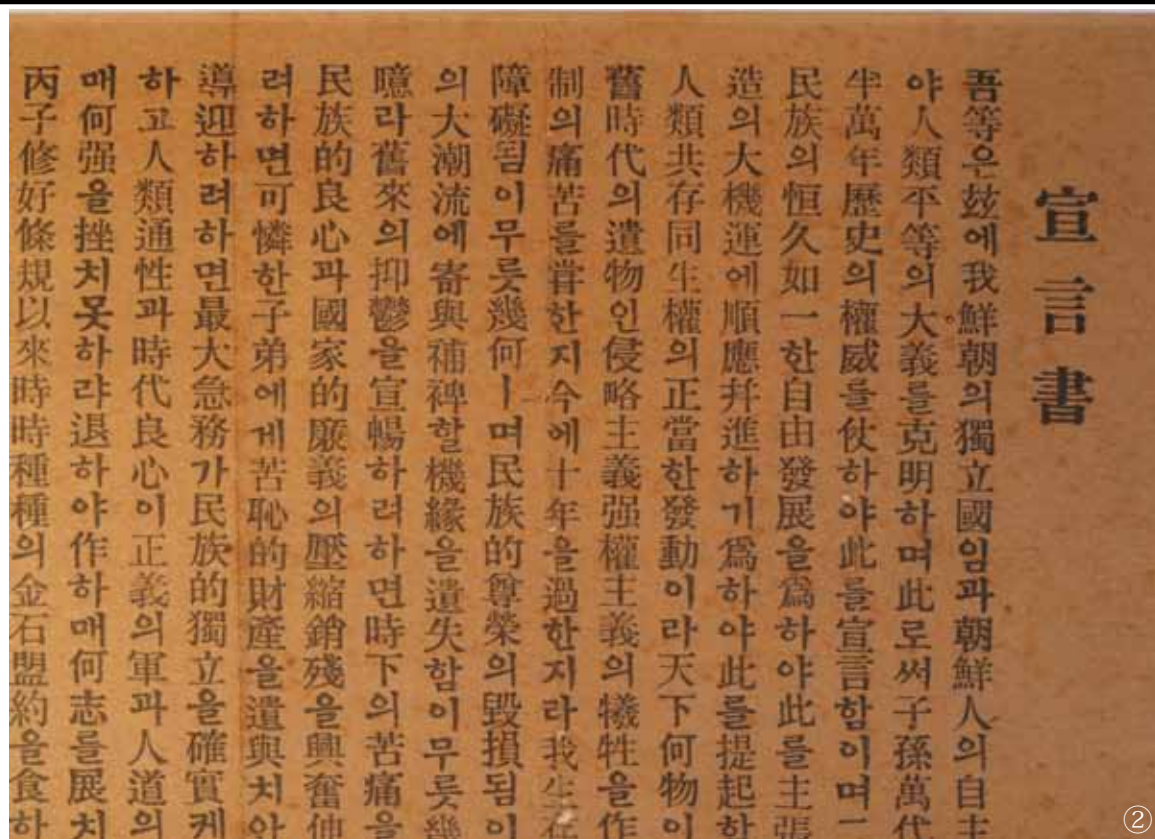 宣言書
吾等은玆에我鮮朝의獨立國임과朝鮮人의自主
야人類平等의大義를克明하며此로써子孫萬代
半萬年歷史의權威를仗하야此를宣言함이며
民族의恒久如一한自由發展을爲하야此를主張
造의大機運에順應幷進하기爲하야此를提起함
人類共存同生權의正當한發動이라天下何物이
舊時代의遺物인侵略主義强權主義의犧牲을作
制의痛苦를嘗한지今에十年을過한지라我生存
障礙됨이무릇幾何ㅣ며民族的尊榮의毁損됨이
의大潮流에寄與補裨할機緣을遺失함이무릇幾
噫라舊來의抑鬱을宣暢하려하면時下의苦痛을
民族的良心과國家的廉義의壓縮銷殘을興奮伸
려하면可憐한子弟에게苦恥的財産을遺與치안
導迎하려하면最大急務가民族的獨立을確實케
하고人類通性과時代良心이正義의軍과人道의
매何强을挫치못하랴退하야作하매何志를展치
丙子修好條規以來時時種種의金石盟約을食하
②